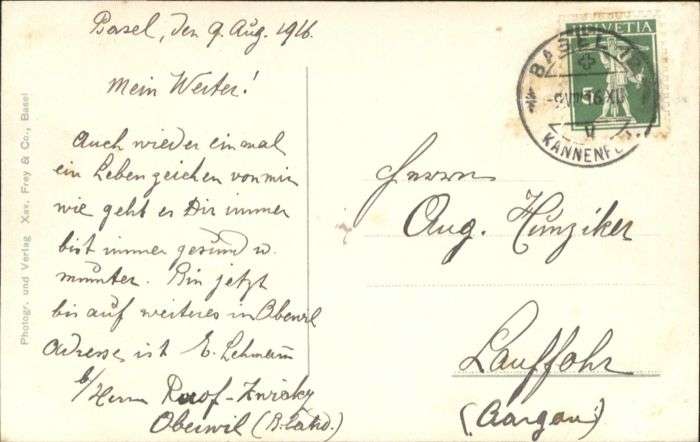 Basel, den 9. Aug. 1916.
Mein Werter!
Auch wieder einmal
ein Lebenszeichen von mir
wie geht es Dir immer
bist immer gesund u.
munter. Bin jetzt
bis auf weiteres in Oberwil
Adresse ist E. Lehmann
b/Herrn
Oberwil (B. Land.)
Herrn
Aug. Hunziker
Lauffohr
(Aargau)
HELVETIA
5
BASEL
KANNENF
Photogr. und Verlag Xav. Frey & Co., Basel